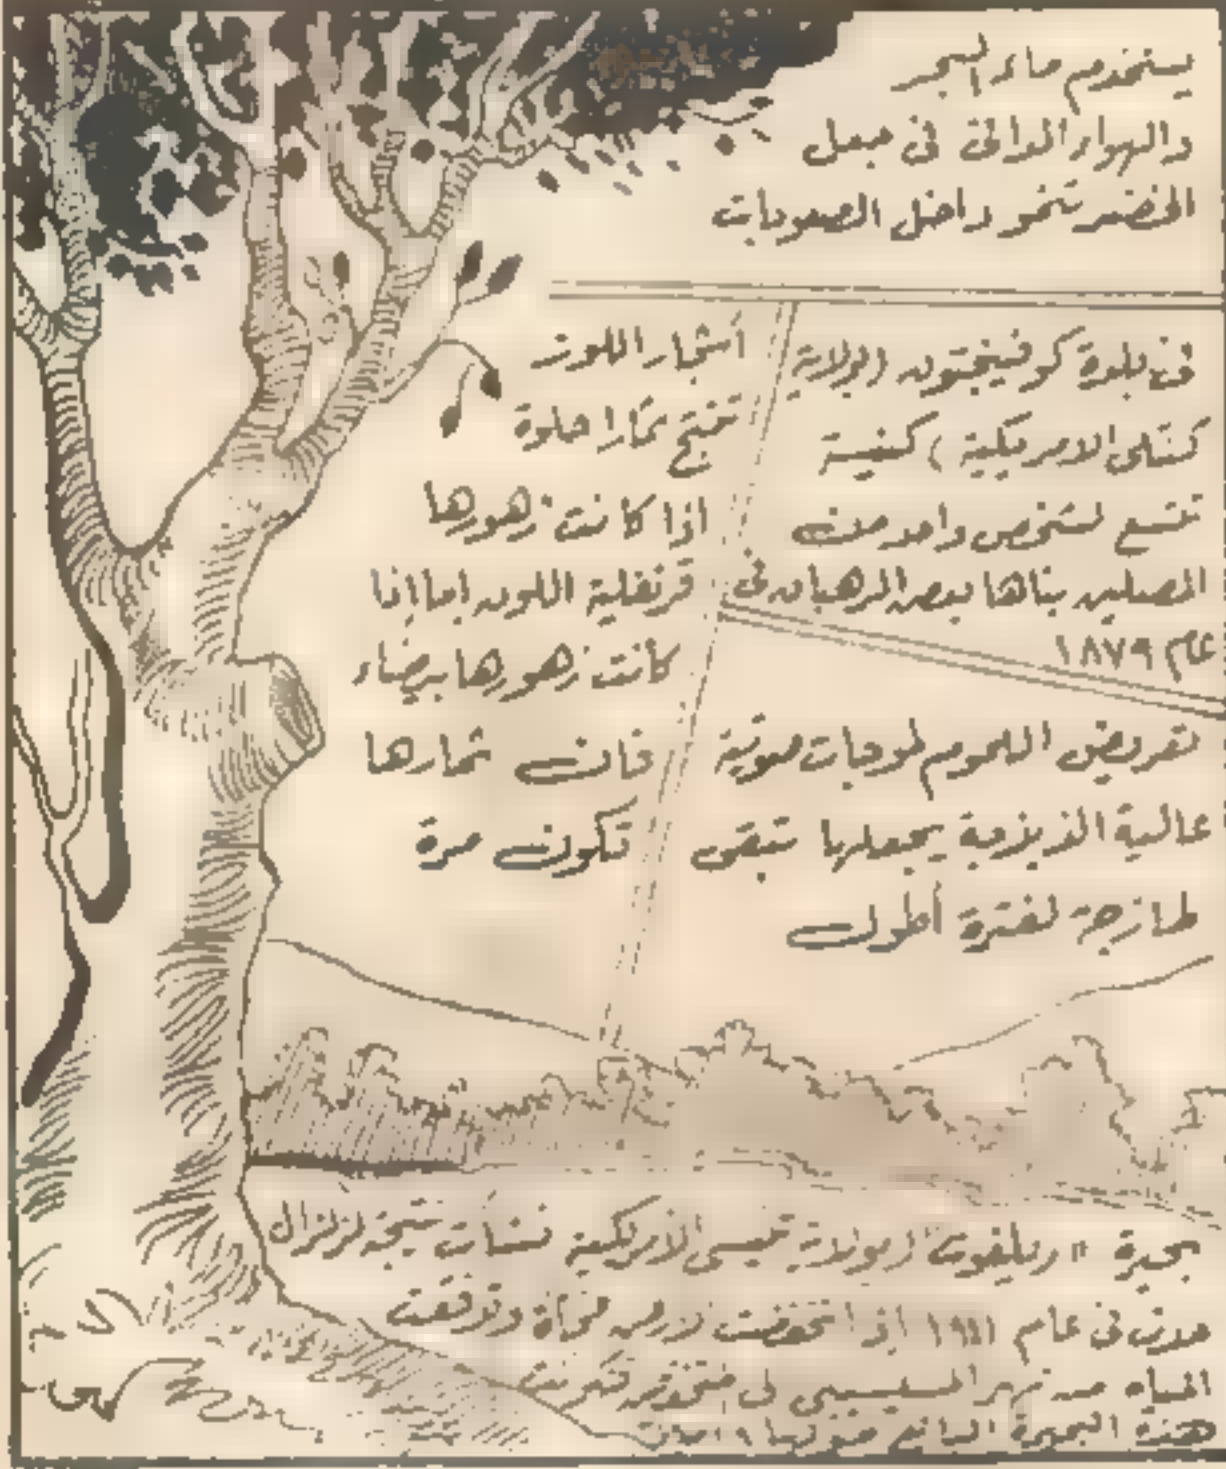 يستخدم ماء البحر
والهواء الدافئ في جعل
الخضر تنمو داخل الصوبات
في بلدة كوفينجتون (بولاية
كنتكى الامريكية) كنيسة
تتسع لشخص واحد من
المصلين بناها بعض الرهبان في
عام ١٨٧٩
أشجار اللوز
تنتج ثمارا حلوة
اذا كانت زهورها
قرنفلية اللون اما اذا
كانت زهورها بيضاء
فان ثمارها
تكون مرة
تعريض اللحوم لموجات صوتية
عالية الذبذبة يجعلها تبقى
طازجة لفترة أطول
بحيرة " ريلفوت " بولاية تنيسى الامريكية نشأت نتيجة لزلزال
حدث في عام اذ انخفضت الارض فجأة وتدفقت
المياه من نهر المسيسيبى فى فتكونت
هذه البحيرة ٩ اميال